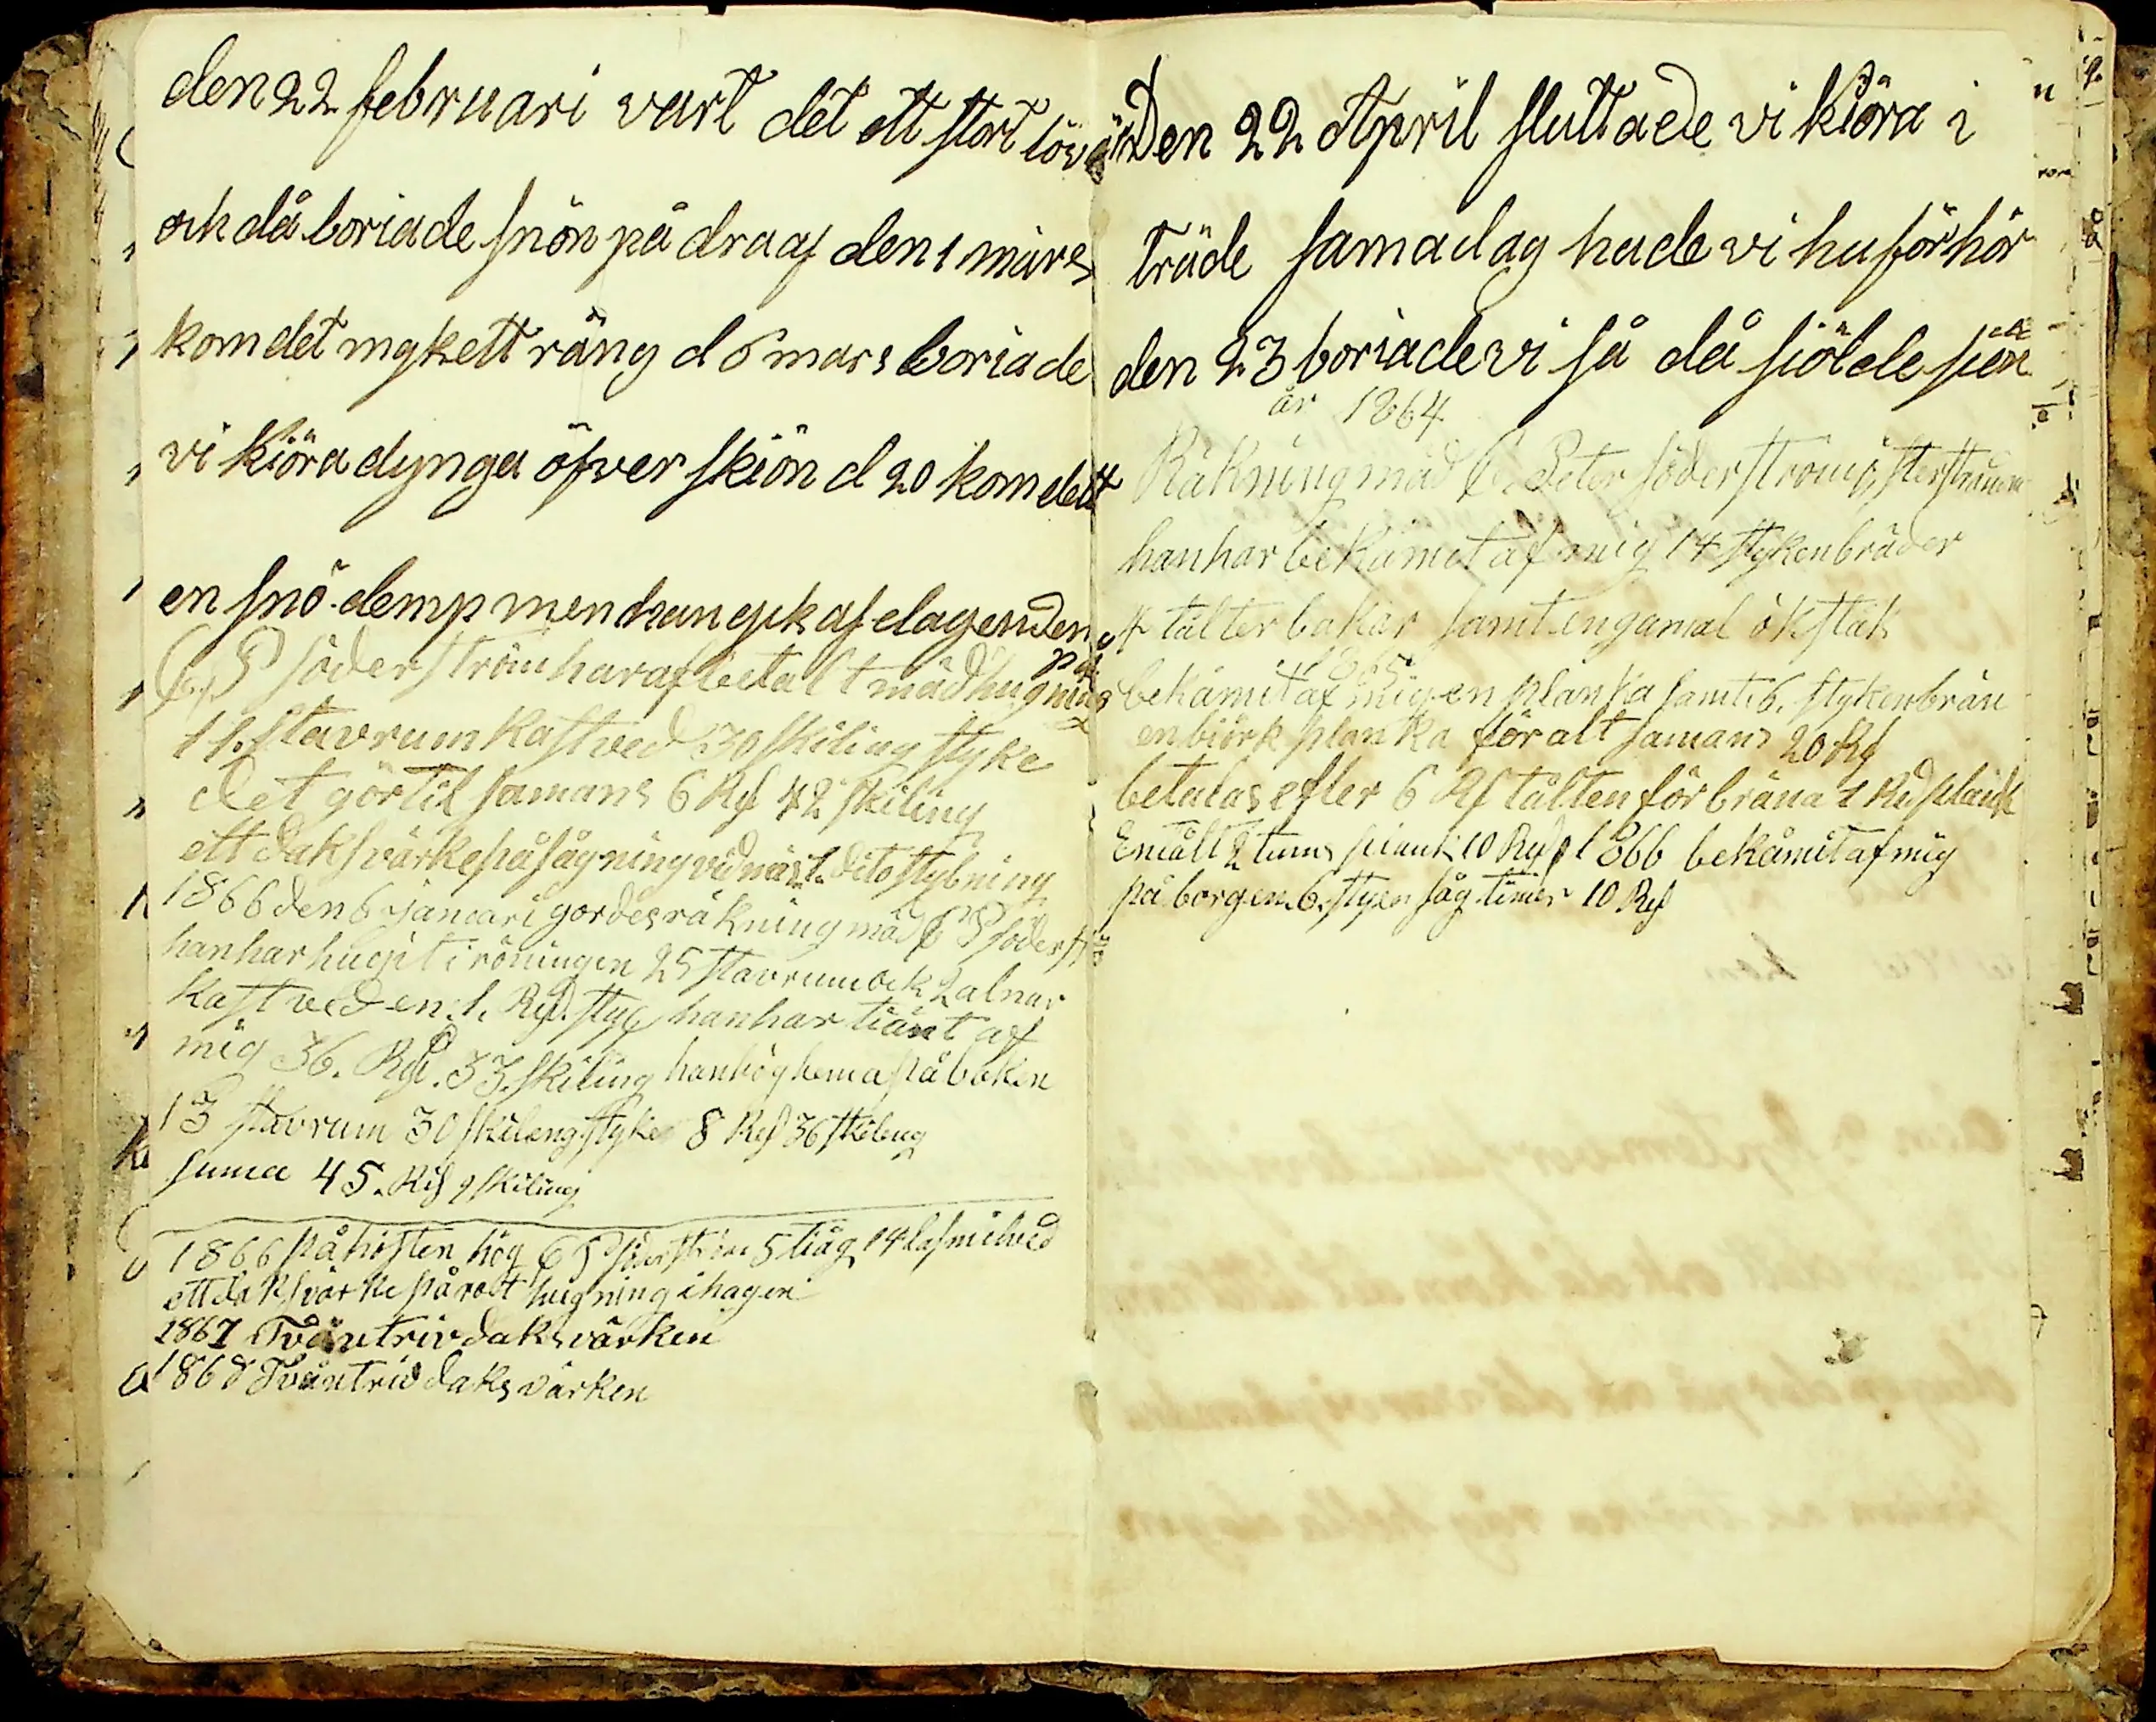 den 22 februari vart det ett stort töv
och då boriade snön på dra af den 1 mars
kom det myket räng d 6 mars boriade
vi kiöra dynga öfver skiön d 20 kom det
en snö demp men han gik af dagenden
på
C P Söderström har af betalt mäd hugning
11 stavrum kastved 30 skiling styke
det gör til samans 6 Rd 42 skiling
ett daksvärke på sågning vid näs 1 dito stybning
1866 den 6 januari gordes räkning mäd C P Söderströ
han har hugit i röningen 25 stavrum ock 2 alnar
kastved en 1 Rd styc han har tiänt af
mig 36. Rd. 33. skiling han hög hema på baken
13 stavrum 30 skileng styke 8 Rd 36 skileng
suma 45. Rd 9 skiling
1866 på hösten hög C P Söderström 5 tiäg 14 las milved
ett daksvärke på rot hugning i hagen
1867 Tvän triv daksvärken
1868 Tvän triv daksvärken
Den 22 April sluttade vi kiöra i
träde sama dag hade vi husförhör
den 23 boriade vi så då siölde siön
år 1864
Räkning mäd C. Peter Söderström
han har bekåmit af mig 14 styken bräder
4 tålter bakar samt en gamal ökstäk
1865
bekåmit af mig en planka samt 6. styken brän
en biörk planka för alt samans 20 Rd
betalas efter 6 Rd tålten för bräna 1 Rd plank
En tålt 2 tums plank 10 Rd 1866 bekåmit af mig
på borgen 6. styen såg timer 10 Rd